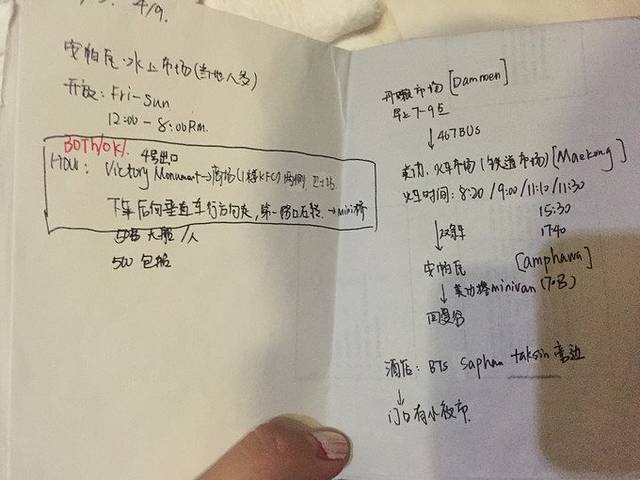 4/9.
安帕瓦水上市场(当地人多)
开放: Fri-Sun
12:00 - 8:00P.M.
BOTH/OK!
4号出口
How: Victory Monument→商场(1楼KFC)
下车后向垂直车行方向走, 第一路口右转. → mini桥
50B 大船/人
500 包船
市场 [Damnoen]
早上7-9点
↓ 467BUS
美功. 火车市场 (铁道市场) [Maekong]
火车时间: 8:20 / 9:00 / 11:10 / 11:30
15:30
17:40
↓ 双条车
安帕瓦 [amphawa]
↓ 美功搭minivan (70B)
回曼谷
酒店: BTS Saphan taksin 旁边
↓
门口有小夜市.